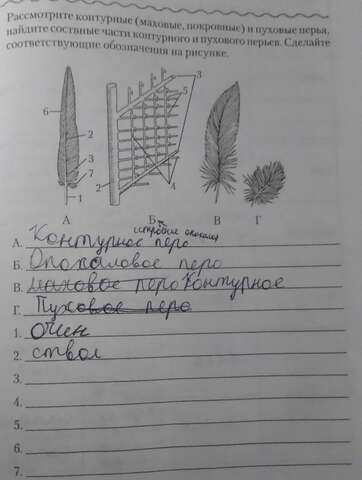 Рассмотрите контурные (маховые, покровные) и пуховые перья,
найдите составные части контурного и пухового перьев. Сделайте
соответствующие обозначения на рисунке.
3
6
5
2
3
7
2
4
1
А Б В Г
строение опахала
А. Контурное перо
Б. Опохаловое перо
В. маховое перо Контурное
Г. Пуховое перо
1. очин
2. ствол
3.
4.
5.
6.
7.